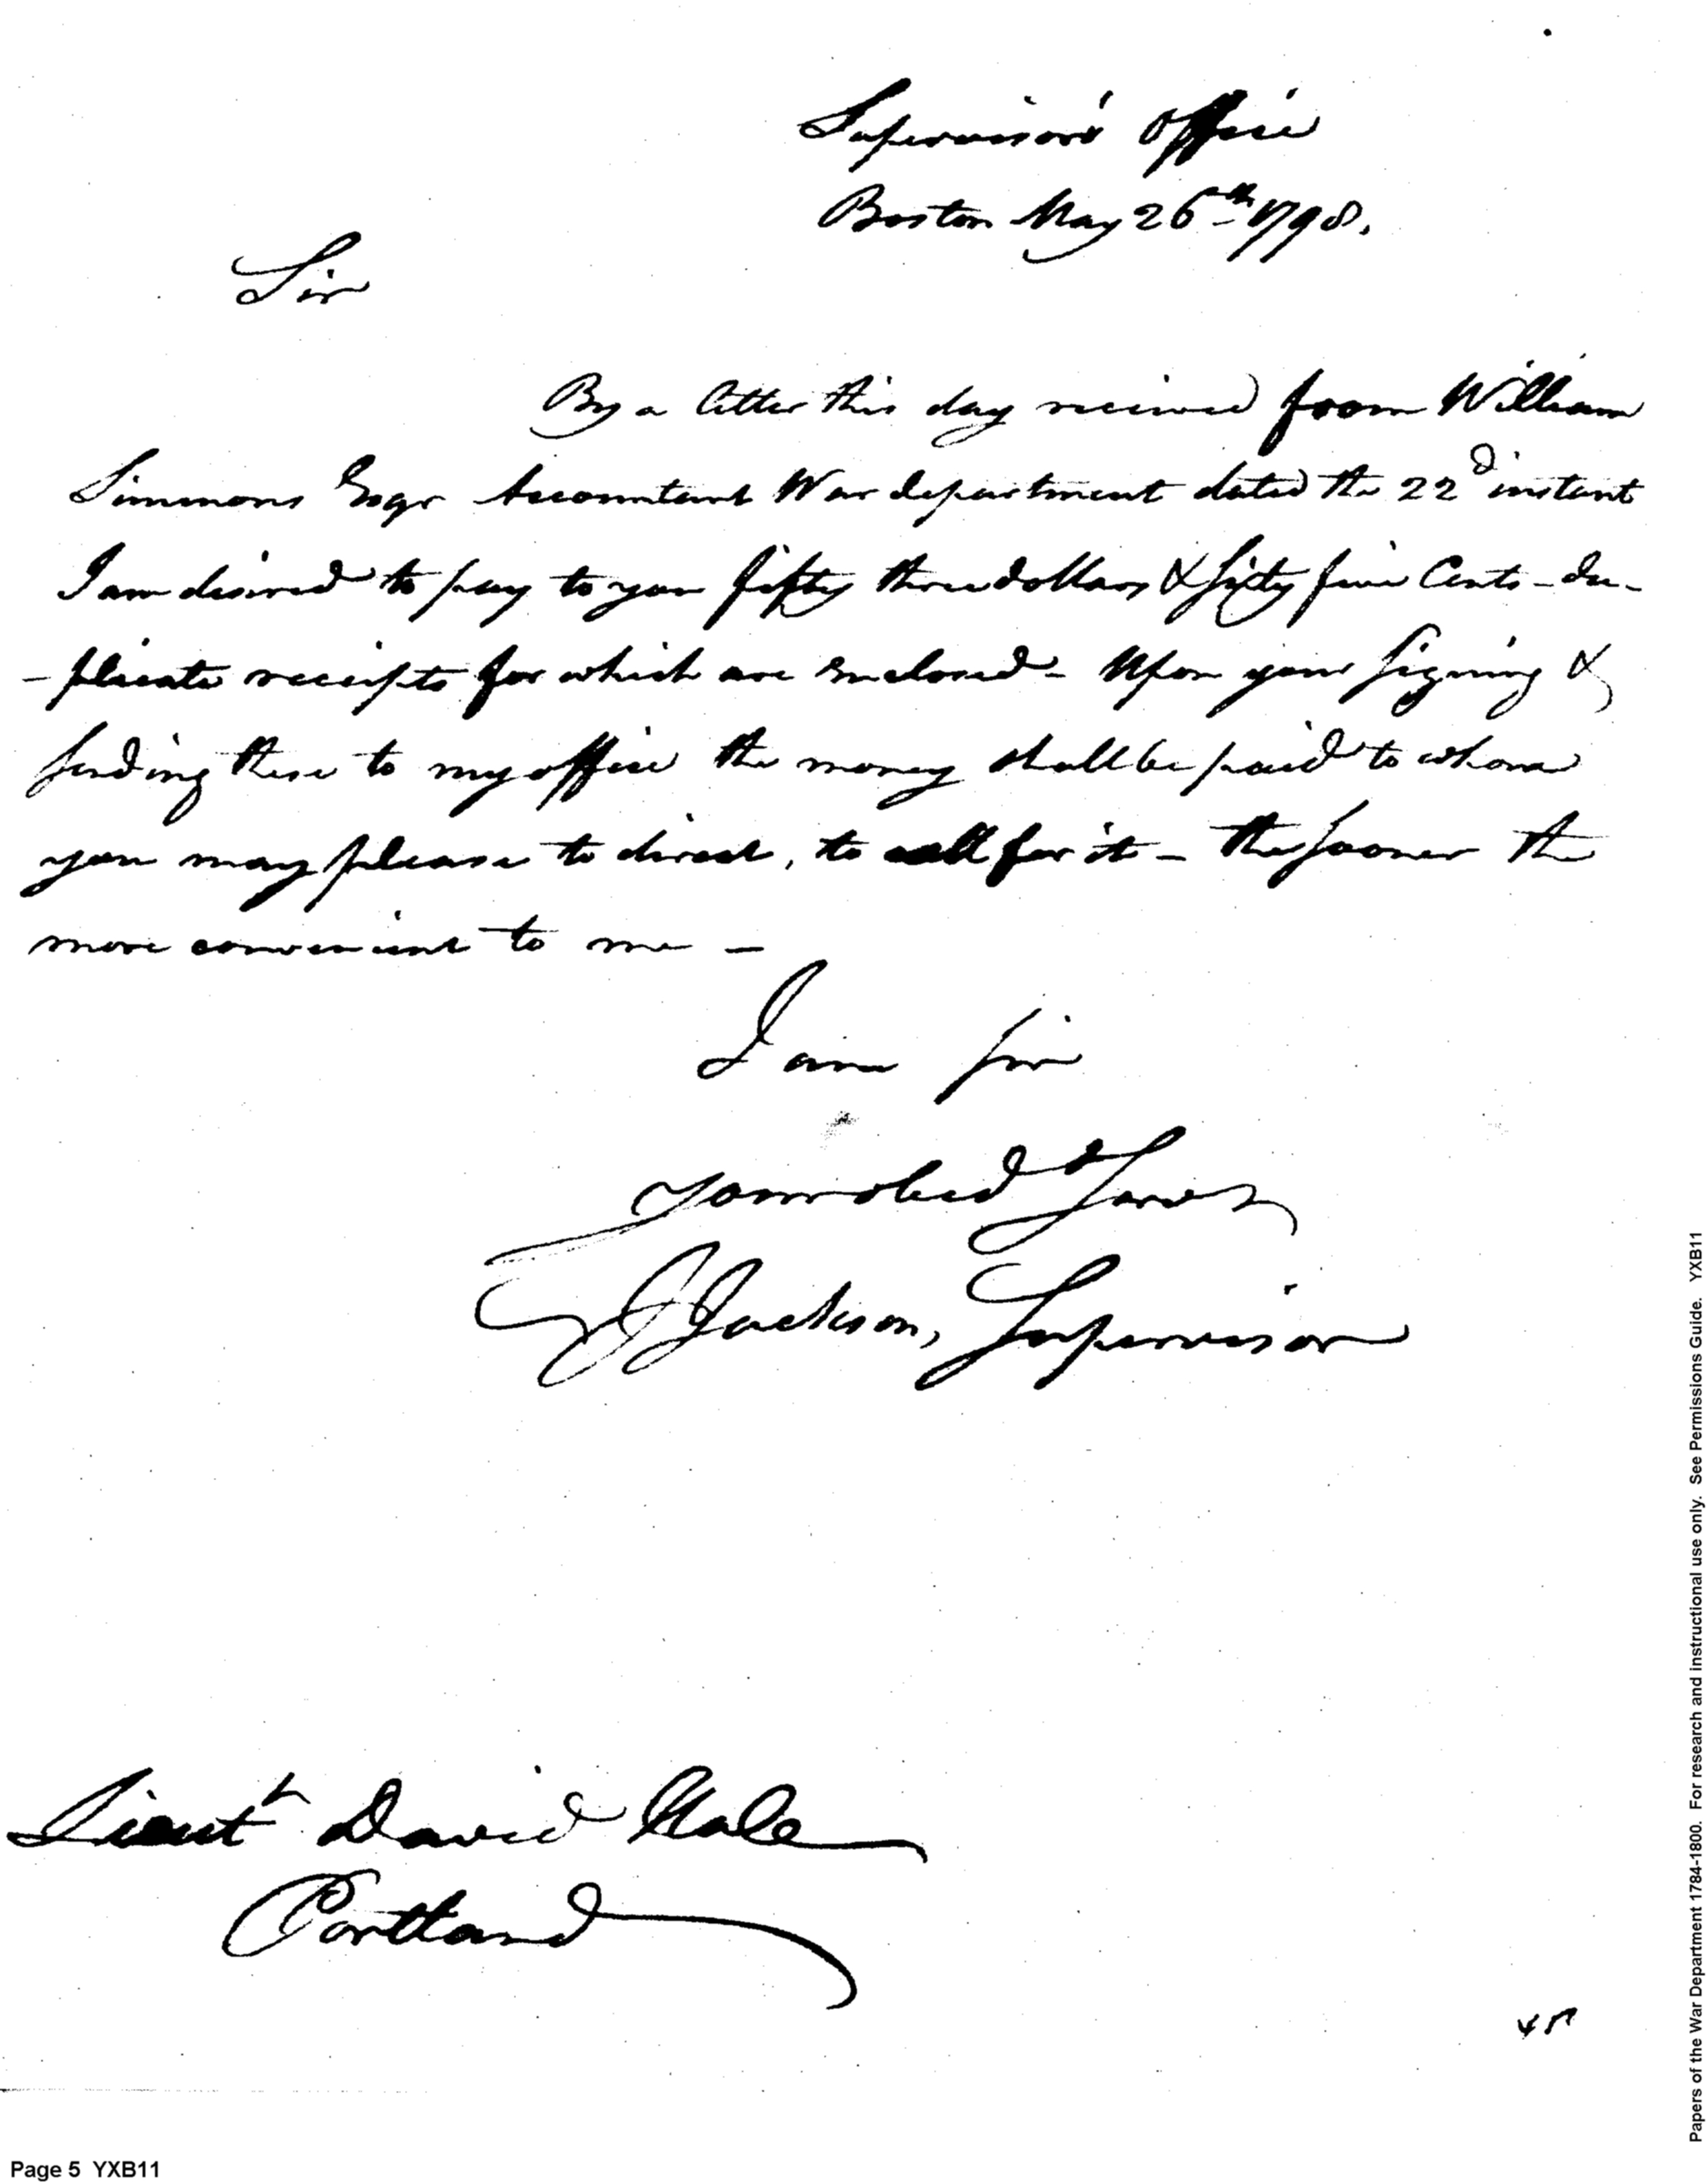 Supervisor's Office
Boston May 26th 1798.
Sir
By a letter this day received from William
Simmons Esqr Accountant War department dated the 22d instant
I am desired to pay to you fifty three dollars & sixty five Cents - du-
- plicate receipts for which are enclosed - Upon your signing &
sending these to my office the money shall be paid to whom
you may please to direct, to call for it - the sooner the
more convenient to me -
I am sir
Your obed Servt
J Jackson, Supervisor
Lieut David Hale
Portland
Page 5 YXB11
Papers of the War Department 1784-1800. For research and instructional use only. See Permissions Guide. YXB11